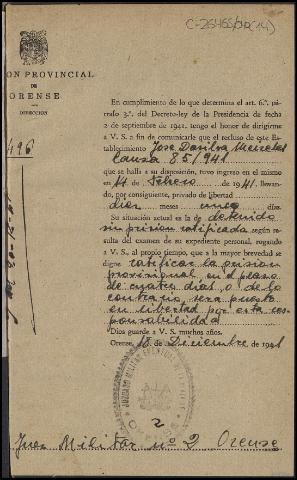 C-26465/30(14)
ON PROVINCIAL
DE
ORENSE
DIRECCION
496
En cumplimiento de lo que determina el art. 6.º, pá-
rrafo 3.º, del Decreto-ley de la Presidencia de fecha
2 de septiembre de 1941, tengo el honor de dirigirme
a V. S. a fin de comunicarle que el recluso de este Es-
tablecimiento Jose
causa 85/941
que se halla a su disposición, tuvo ingreso en el mismo
en 14 de Febrero de 1941, llevan-
do, por consiguiente, privado de libertad
diez meses días.
Su situación actual es la de detenido
sin prision ratificada, según re-
sulta del examen de su expediente personal, rogando
a V. S., al propio tiempo, que a la mayor brevedad se
digne ratificar la prision
provisional en el plazo
de cuatro dias, o de lo
contrario, sera puesto
en libertad por esta res-
ponsabilidad
Dios guarde a V. S. muchos años.
Orense, 18 de Diciembre de 1941
JUZGADO MILITAR
2
Juez Militar nº 2 Orense